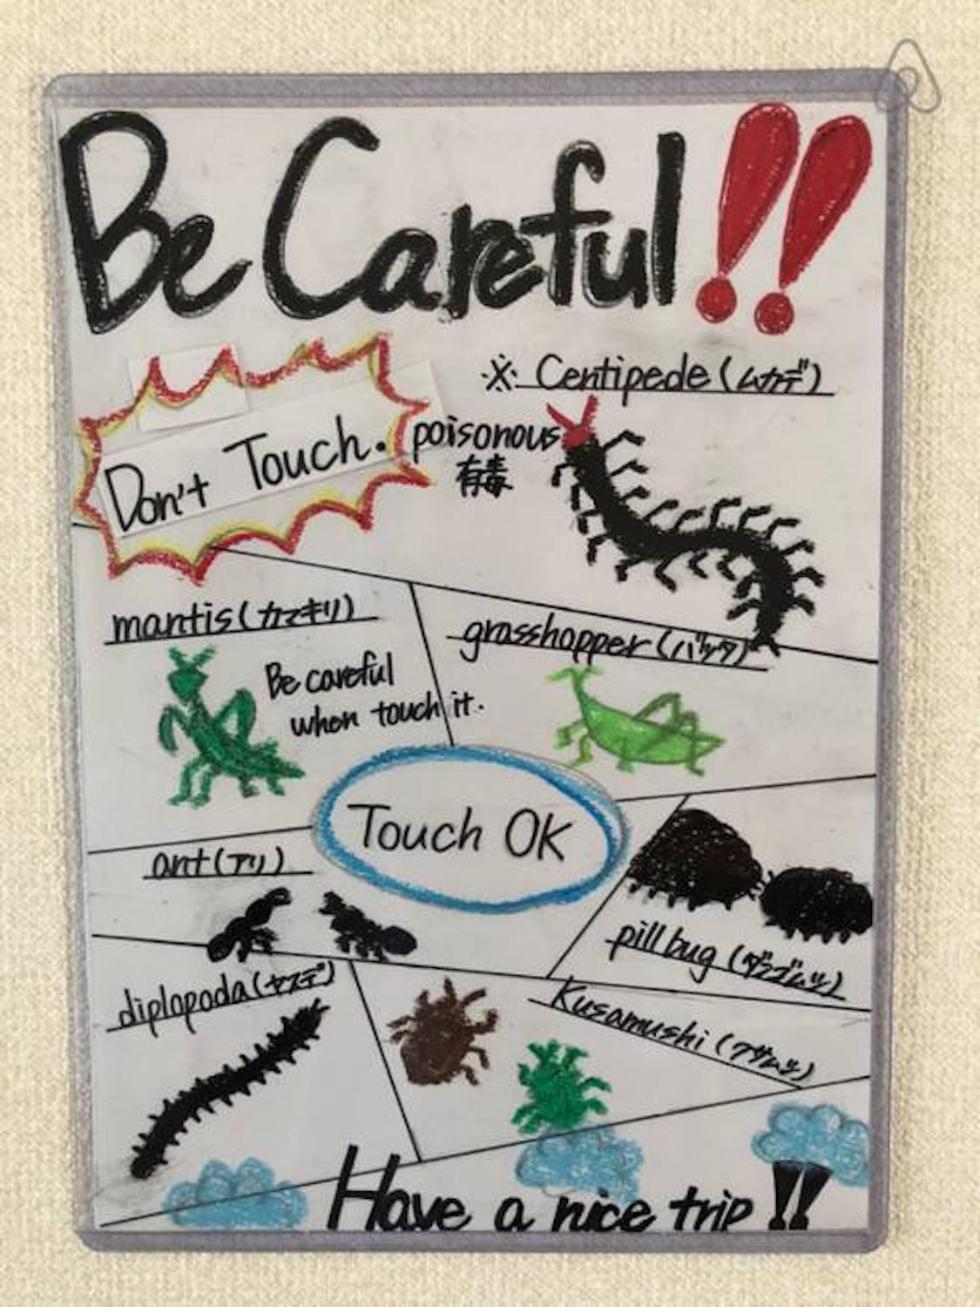 Be Careful!!
※ Centipede (ムカデ)
Don't Touch.
poisonous
有毒
mantis (カマキリ)
Be careful
when touch it.
grasshopper (バッタ)
Touch OK
ant (アリ)
pill bug (ダンゴムシ)
diplopoda (ヤスデ)
Kusamushi (クサムシ)
Have a nice trip!!